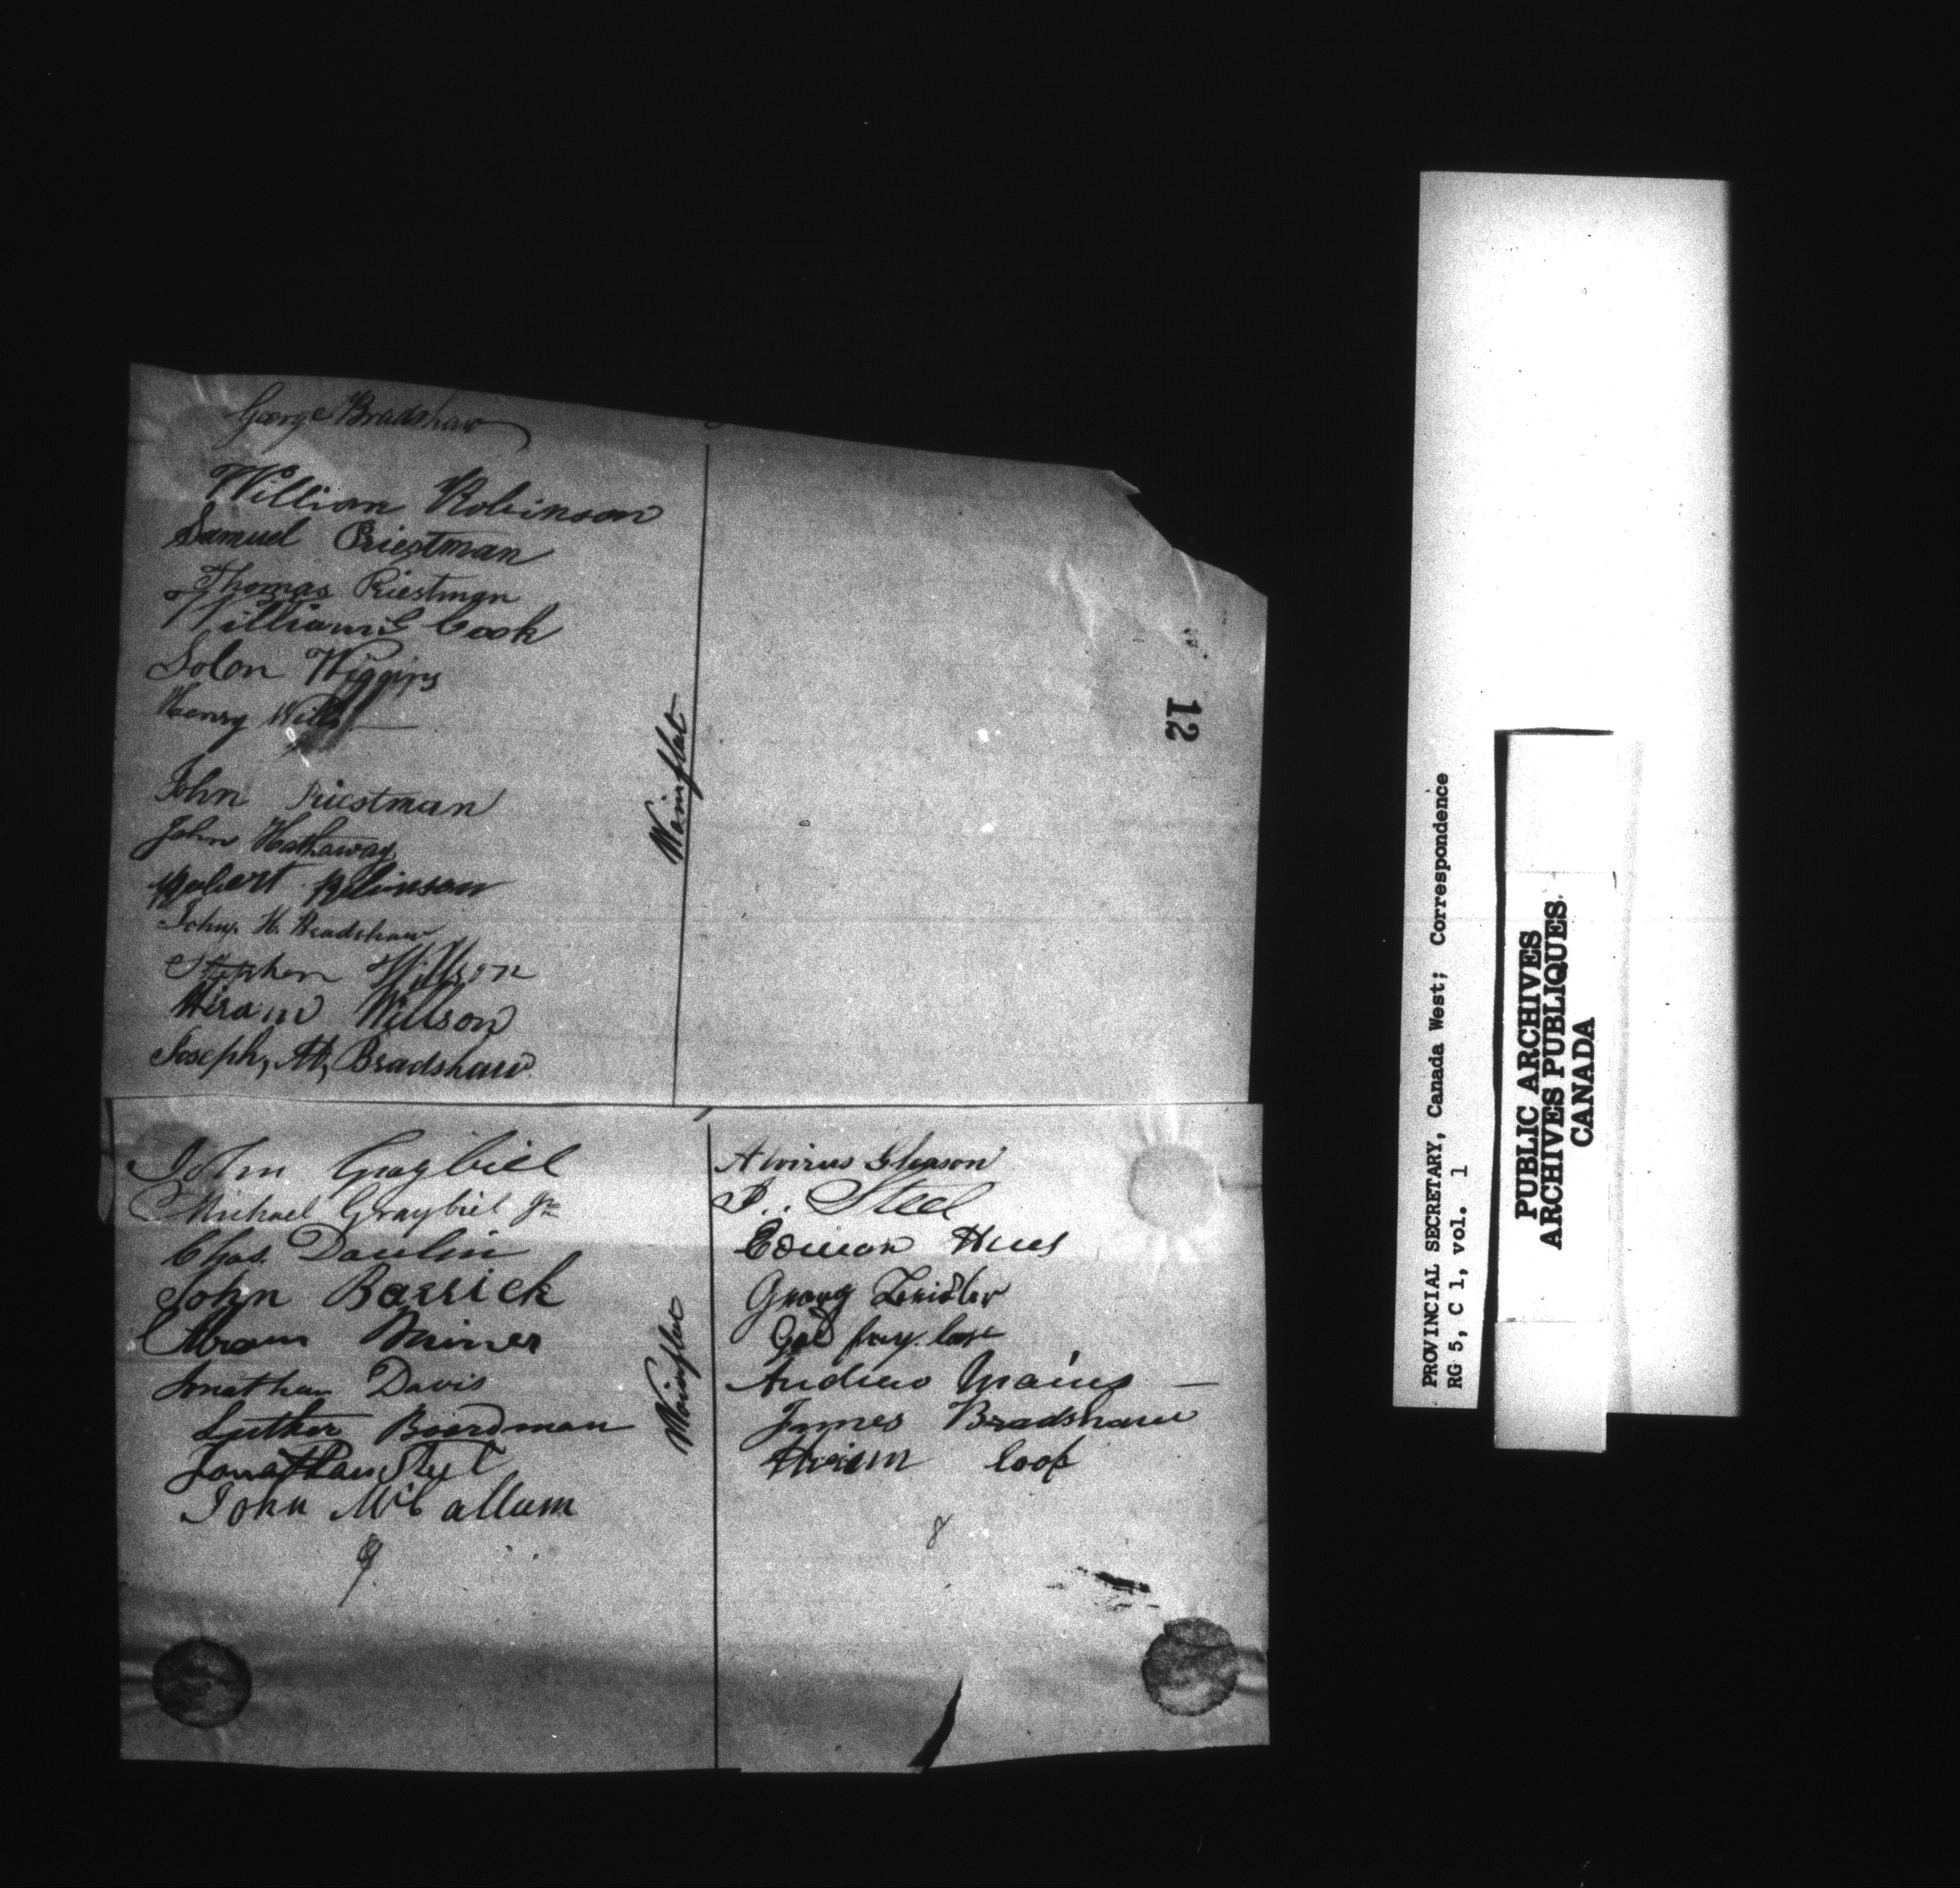 George Bradshaw
William Robinson
Samuel Priestman
Thomas Priestman
William G Cook
Solon Wiggins
Henry Wills
John Priestman
John Hathaway
Robert Robinson
John H. Bradshaw
Stephen Willson
Hiram Willson
Joseph, H, Bradshaw
Wainflat
12
John Graybiel
Michael Graybiel Jr
Chas. Daulin
John Barrick
Abram Miner
Jonathan Davis
Luther Boardman
Jonathan
John McCallum
9
Wainflat
Alvirus Gleason
D.. Steel
Georg Zeidler
Andrew Mains
James Bradshaw
Hiram Cook
8
PROVINCIAL SECRETARY, Canada West; Correspondence
RG 5, C 1, vol. 1
PUBLIC ARCHIVES
ARCHIVES PUBLIQUES
CANADA